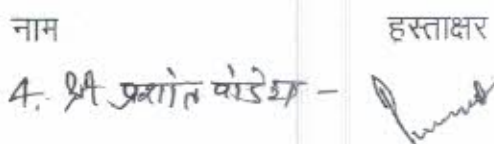 नाम हस्ताक्षर
4. श्री प्रशांत पांडेय -